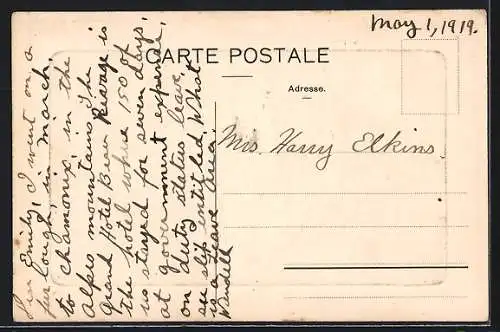 May 1, 1919.
CARTE POSTALE
Adresse.
Mrs. Harry Elkins
Emily; I went on a
furlough, in march,
to Chamonix, in the
Alpes mountains. The
Grand Hotel Beau Rivage is
the hotel where 150 of
us stayed for seven days;
at government expense;
on duty status leave,
see slip entitled What
is a Leave Area;